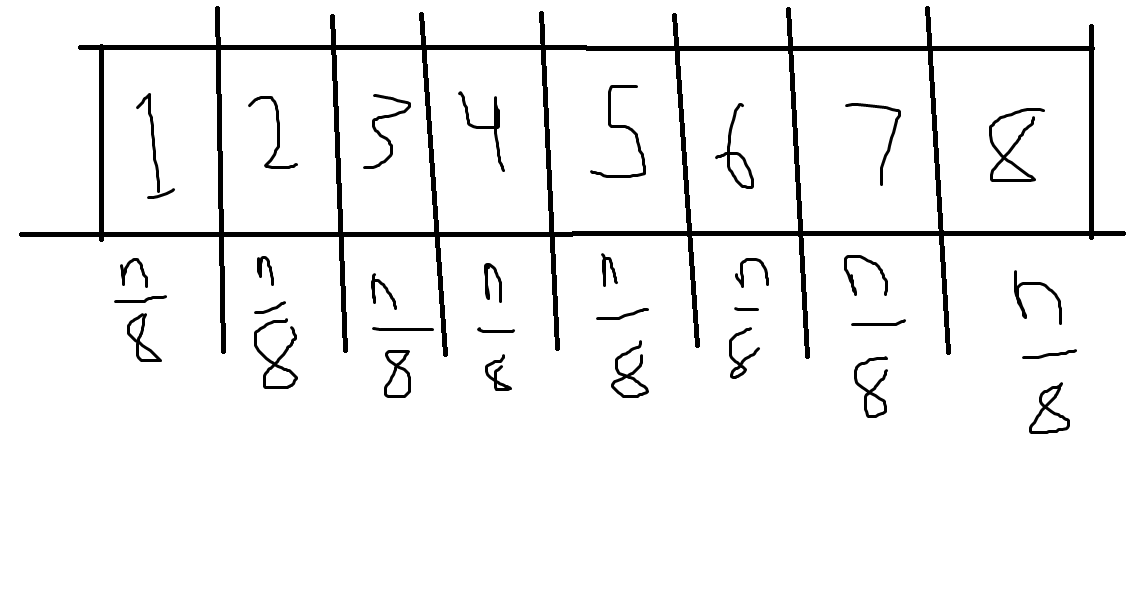 1 2 3 4 5 6 7 8
n/8 n/8 n/8 n/8 n/8 n/8 n/8 n/8